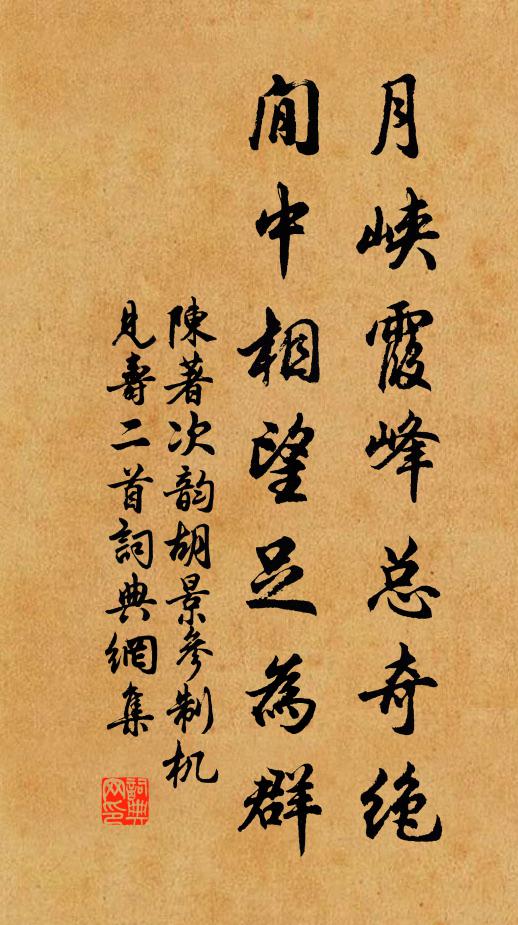 月峡霞峰总奇绝
閒中相望足為群
陳著次韵胡景參制机
見壽二首詞典網集
詞典
网印